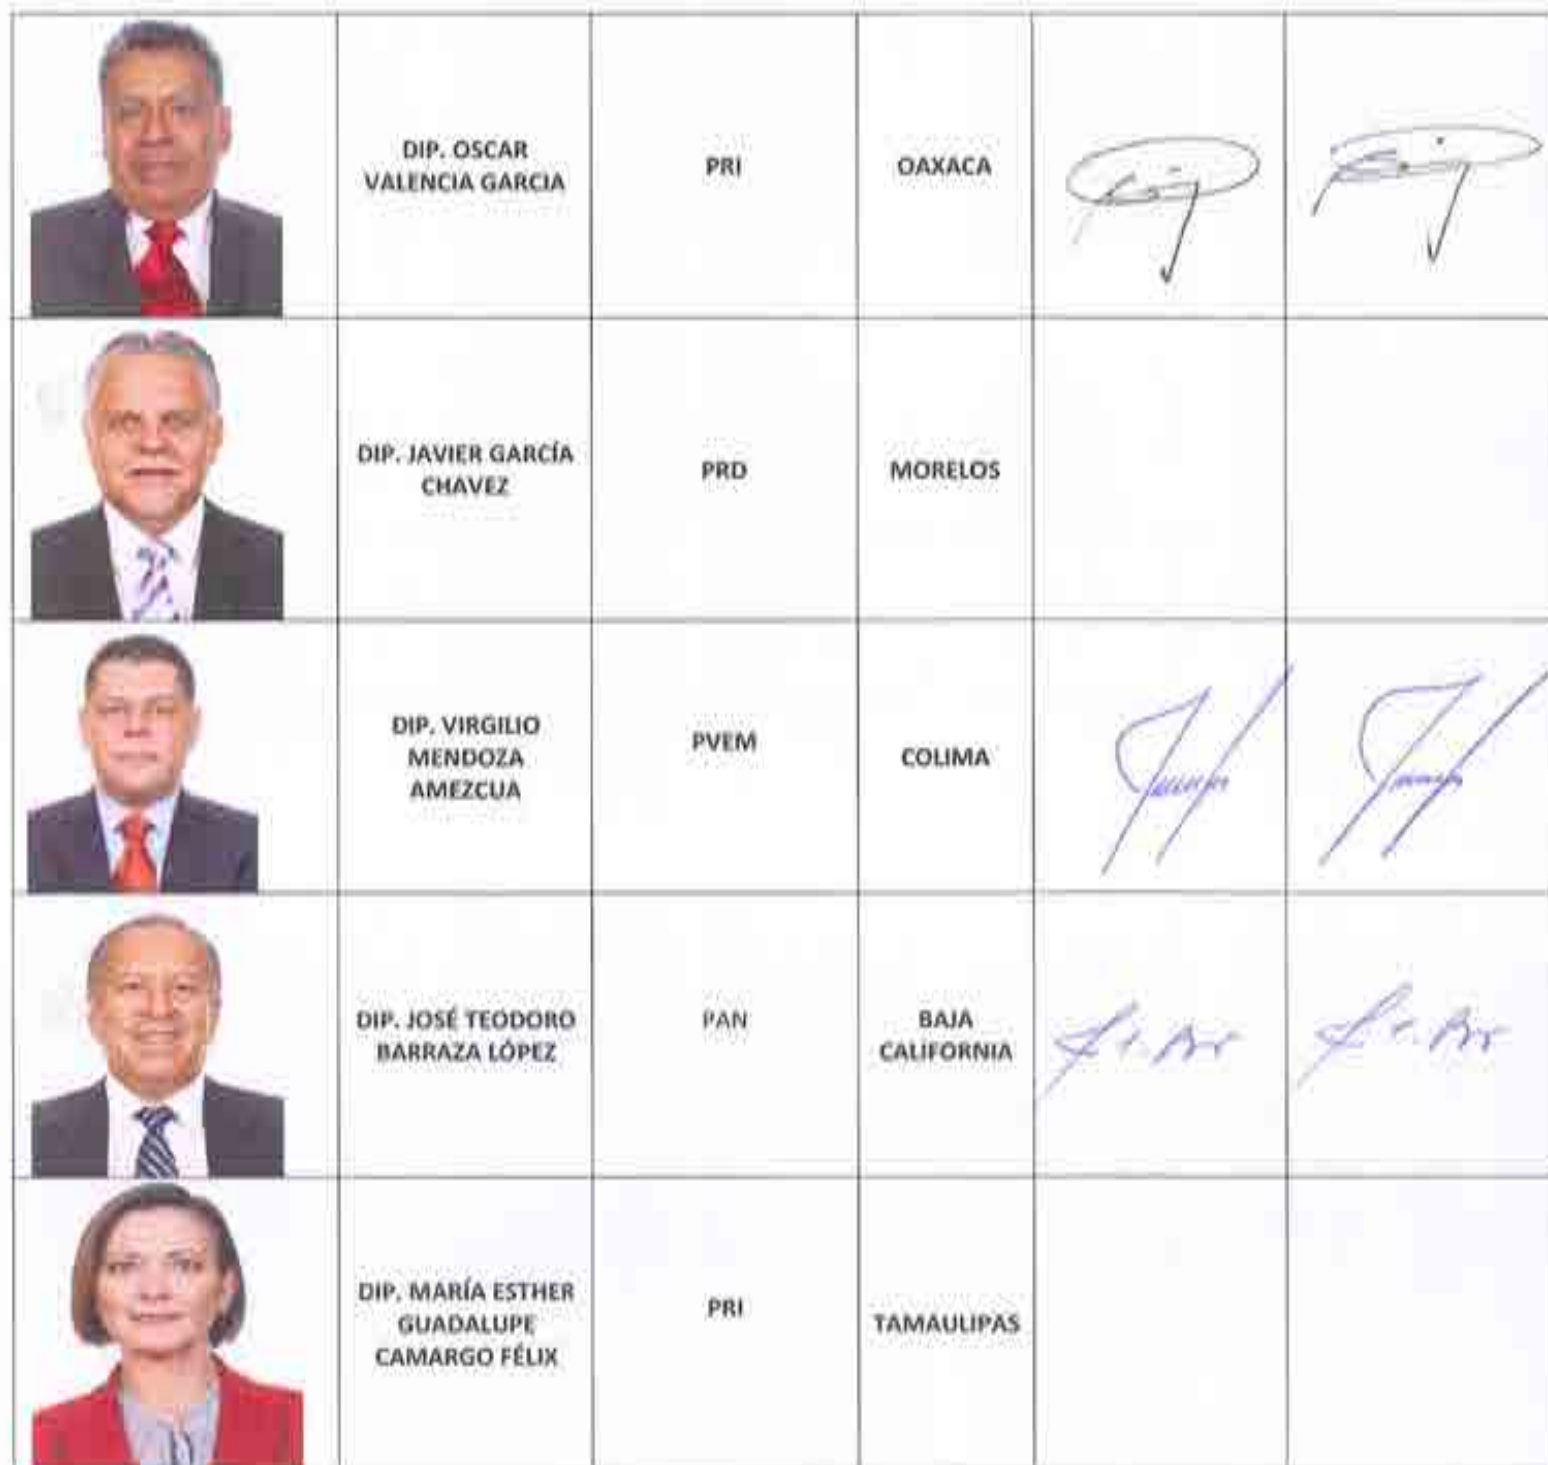 DIP. OSCAR
VALENCIA GARCIA
PRI
OAXACA
DIP. JAVIER GARCÍA
CHAVEZ
PRD
MORELOS
DIP. VIRGILIO
MENDOZA
AMEZCUA
PVEM
COLIMA
DIP. JOSÉ TEODORO
BARRAZA LÓPEZ
PAN
BAJA
CALIFORNIA
DIP. MARÍA ESTHER
GUADALUPE
CAMARGO FÉLIX
PRI
TAMAULIPAS